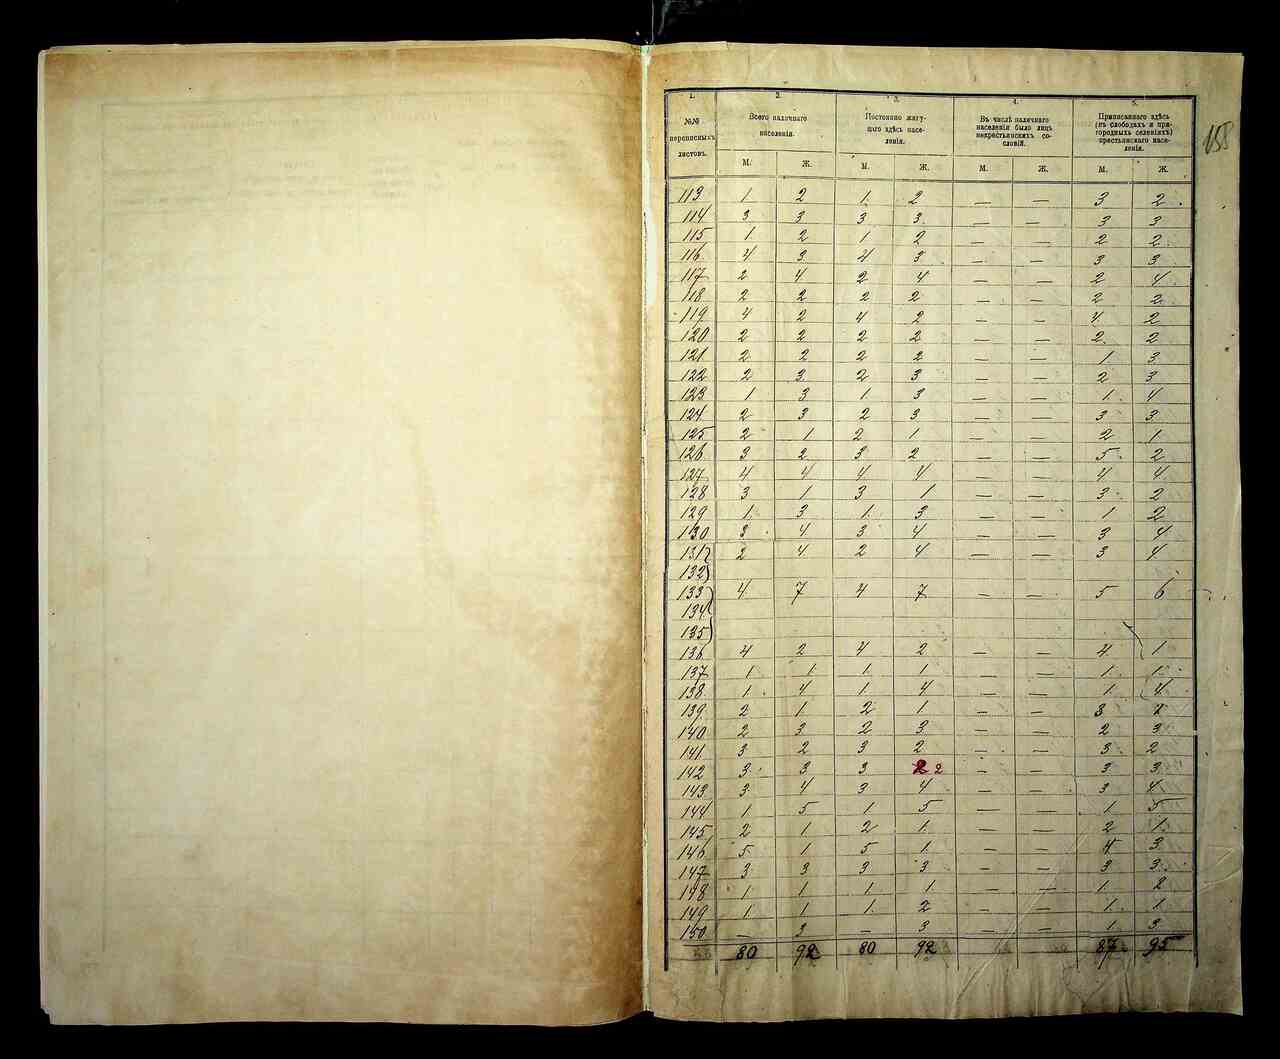 1. 2. 3. 4. 5.
№№ переписныхъ листовъ.
Всего наличнаго населенія.
Постоянно живущаго здѣсь населенія.
Въ числѣ наличнаго населенія было лицъ некрестьянскихъ сословій.
Приписаннаго здѣсь (въ слободахъ и пригородныхъ селеніяхъ) крестьянскаго населенія.
158
М. Ж. М. Ж. М. Ж. М. Ж.
113 1 2 1 2 — — 3 2
114 3 3 3 3 — — 3 3
115 1 2 1 2 — — 2 2
116 4 3 4 3 — — 3 3
117 2 4 2 4 — — 2 4
118 2 2 2 2 — — 2 2
119 4 2 4 2 — — 4 2
120 2 2 2 2 — — 2 2
121 2 2 2 2 — — 1 3
122 2 3 2 3 — — 2 3
123 1 3 1 3 — — 1 4
124 2 3 2 3 — — 3 3
125 2 1 2 1 — — 2 1
126 3 2 3 2 — — 5 2
127 4 4 4 4 — — 4 4
128 3 1 3 1 — — 3 2
129 1 3 1 3 — — 1 2
130 3 4 3 4 — — 3 4
131 2 4 2 4 — — 3 4
132
133 4 7 4 7 — — 5 6
134
135
136 4 2 4 2 — — 4 1
137 1 1 1 1 — — 1 1
138 1 4 1 4 — — 1 4
139 2 1 2 1 — — 3
140 2 3 2 3 — — 2 3
141 3 2 3 2 — — 3 2
142 3 3 3 2 — — 3 3
143 3 4 3 4 — — 3 4
144 1 5 1 5 — — 1 5
145 2 1 2 1 — — 2 1
146 5 1 5 1 — — 4 3
147 3 3 3 3 — — 3 3
148 1 1 1 1 — — 1 2
149 1 1 1 2 — — 1 1
150 — 3 — 3 — — 1 3
80 92 80 92 87 95